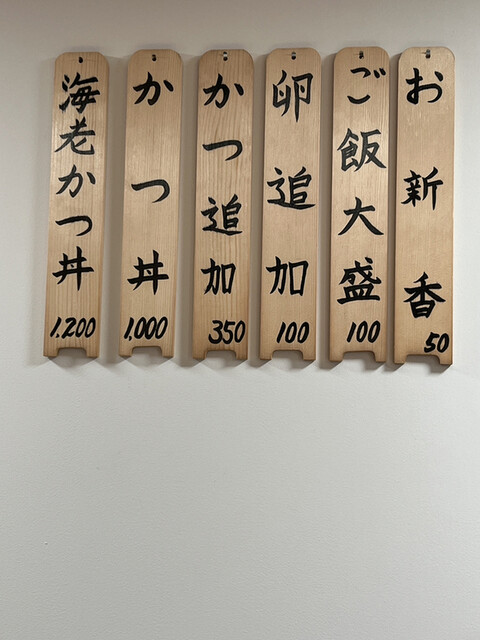 お新香
50
ご飯大盛
100
卵追加
100
かつ追加
350
かつ丼
1,000
海老かつ丼
1,200